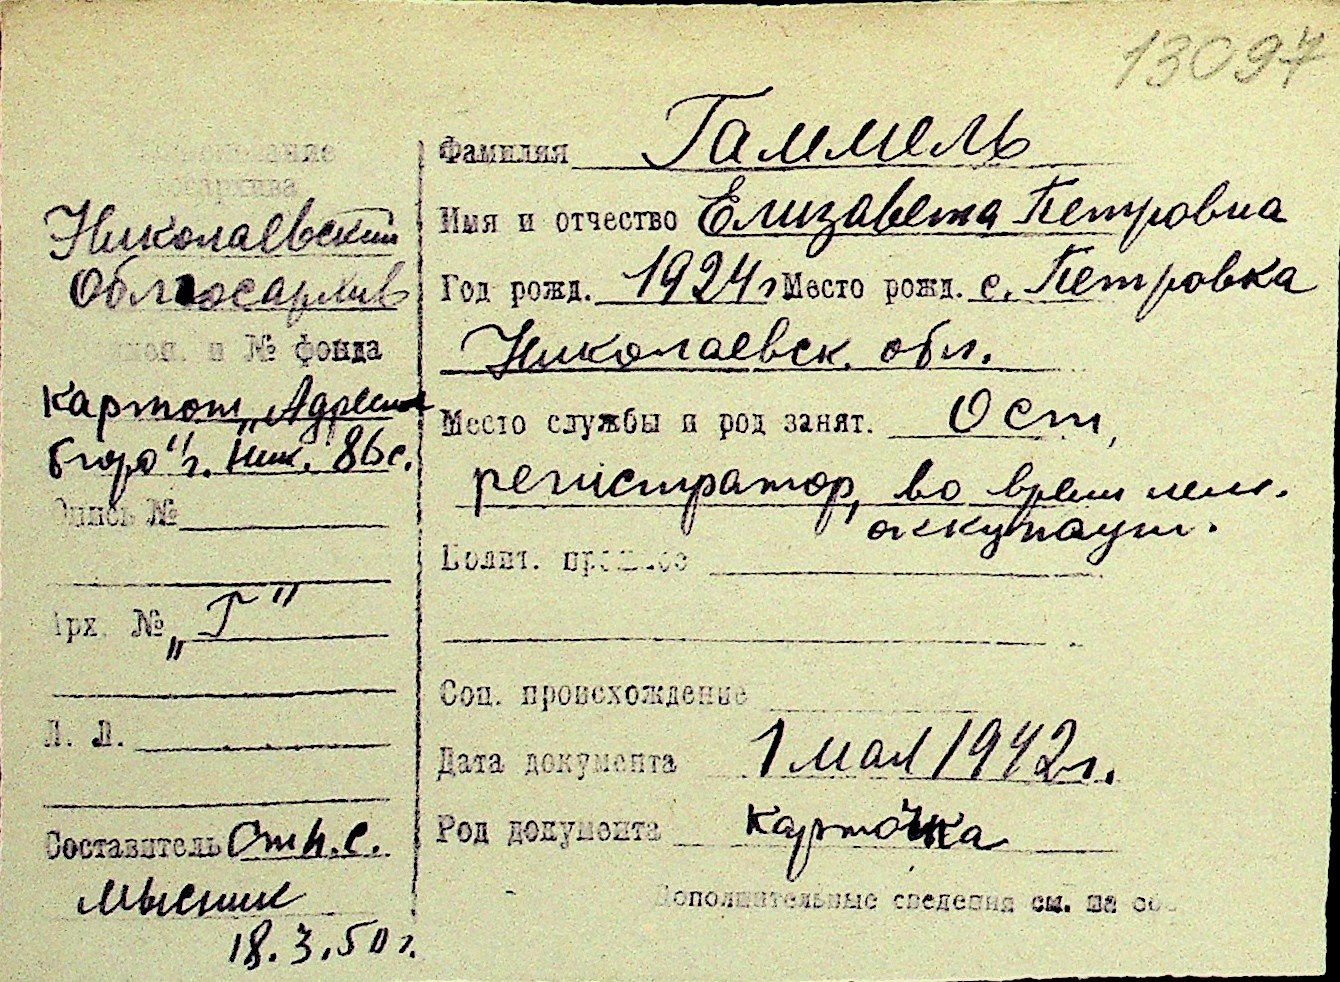 13097
Наименование
госархива
Николаевский
Облгосархив
наим. и № фонда
Картот. „Адресн
бюро" г. Ник. 86 с.
Опись №
Арх. № „Г"
Л. Л.
Составитель Ст. н. с.
Мысник
18.3.50 г.
Фамилия Гаммель
Имя и отчество Елизавета Петровна
Год рожд. 1924 г Место рожд. с. Петровка
Николаевск. обл.
Место службы и род занят. Ост,
регистратор, во врем. нем.
оккупации.
Полит. прошлое
Соц. происхождение
Дата документа 1 мая 1942 г.
Род документа карточка
Дополнительные сведения см. на об